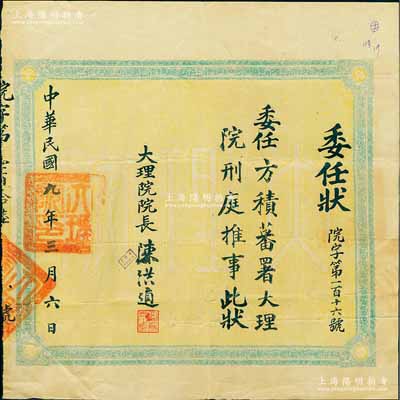 委任狀
院字第一百十六號
委任方積蕃署大理
院刑庭推事此狀
大理院院長 陳洪道
中華民國九年三月六日
院字第
號
上海陽明拍賣
上海陽明拍卖